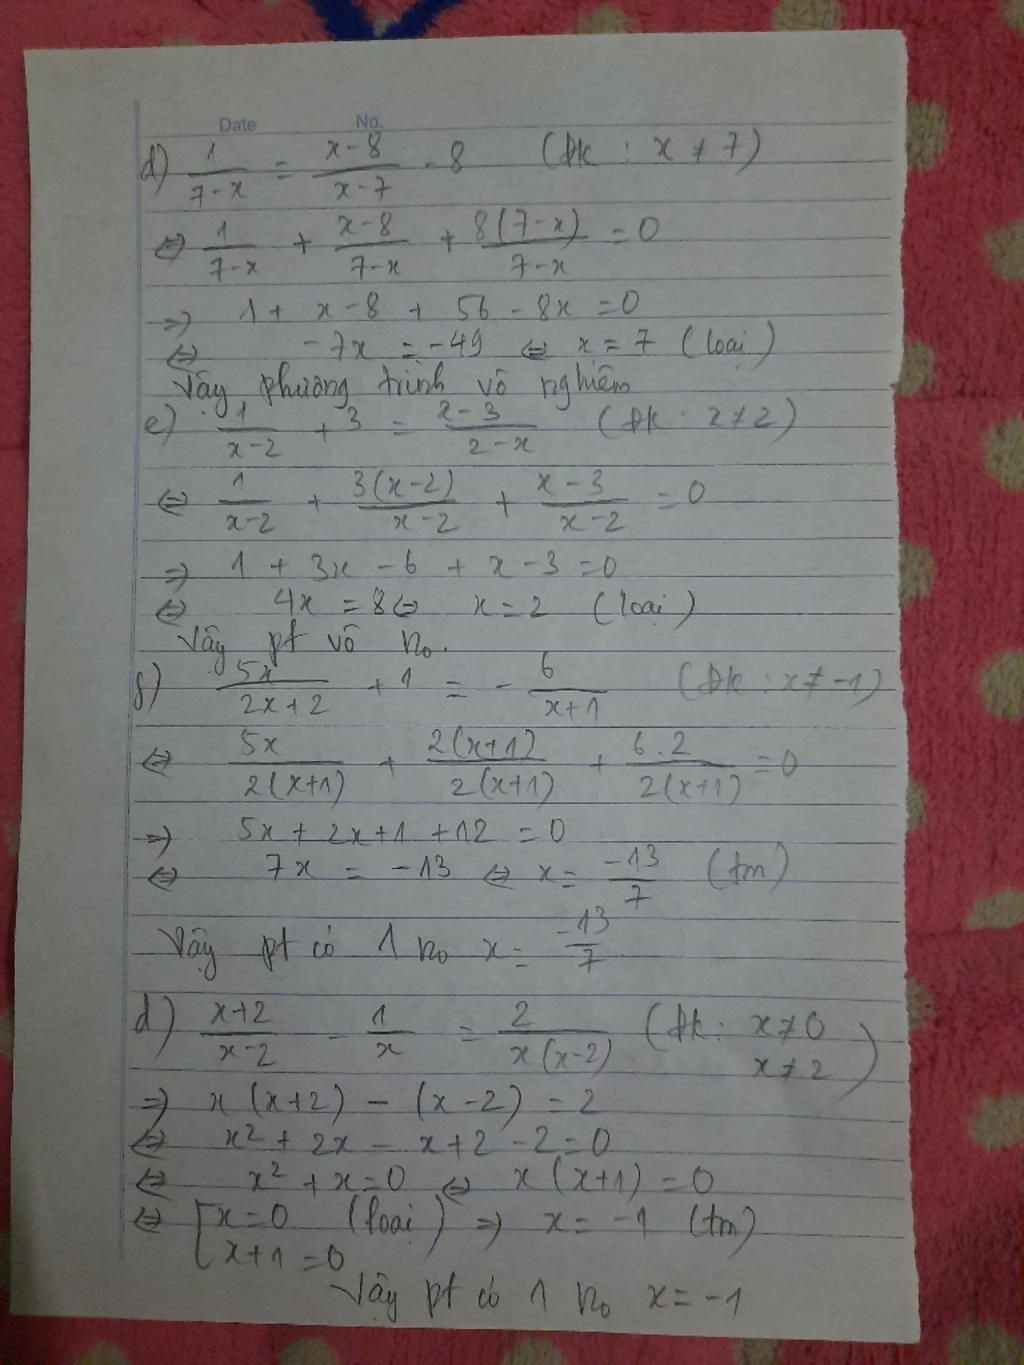 Date No.
d) 1/(7-x) = (x-8)/(x-7) - 8 (Đk : x ≠ 7)
⇔ 1/(7-x) + (x-8)/(7-x) + 8(7-x)/(7-x) = 0
⇒ 1 + x - 8 + 56 - 8x = 0
⇔ -7x = -49 ⇔ x = 7 (loại)
Vậy phương trình vô nghiệm
e) 1/(x-2) + 3 = (x-3)/(2-x) (Đk : x ≠ 2)
⇔ 1/(x-2) + 3(x-2)/(x-2) + (x-3)/(x-2) = 0
⇒ 1 + 3x - 6 + x - 3 = 0
⇔ 4x = 8 ⇔ x = 2 (loại)
Vậy pt vô no.
f) 5x/(2x+2) + 1 = - 6/(x+1) (Đk : x ≠ -1)
⇔ 5x/(2(x+1)) + 2(x+1)/(2(x+1)) + 6.2/(2(x+1)) = 0
⇒ 5x + 2x + 1 + 12 = 0
⇔ 7x = -13 ⇔ x = -13/7 (tm)
Vậy pt có 1 no x = -13/7
d) (x+2)/(x-2) - 1/x = 2/(x(x-2)) (Đk : x ≠ 0
x ≠ 2)
⇒ x(x+2) - (x-2) = 2
⇔ x² + 2x - x + 2 - 2 = 0
⇔ x² + x = 0 ⇔ x(x+1) = 0
⇔ [ x = 0 (loại) ⇒ x = -1 (tm)
x + 1 = 0
Vậy pt có 1 no x = -1